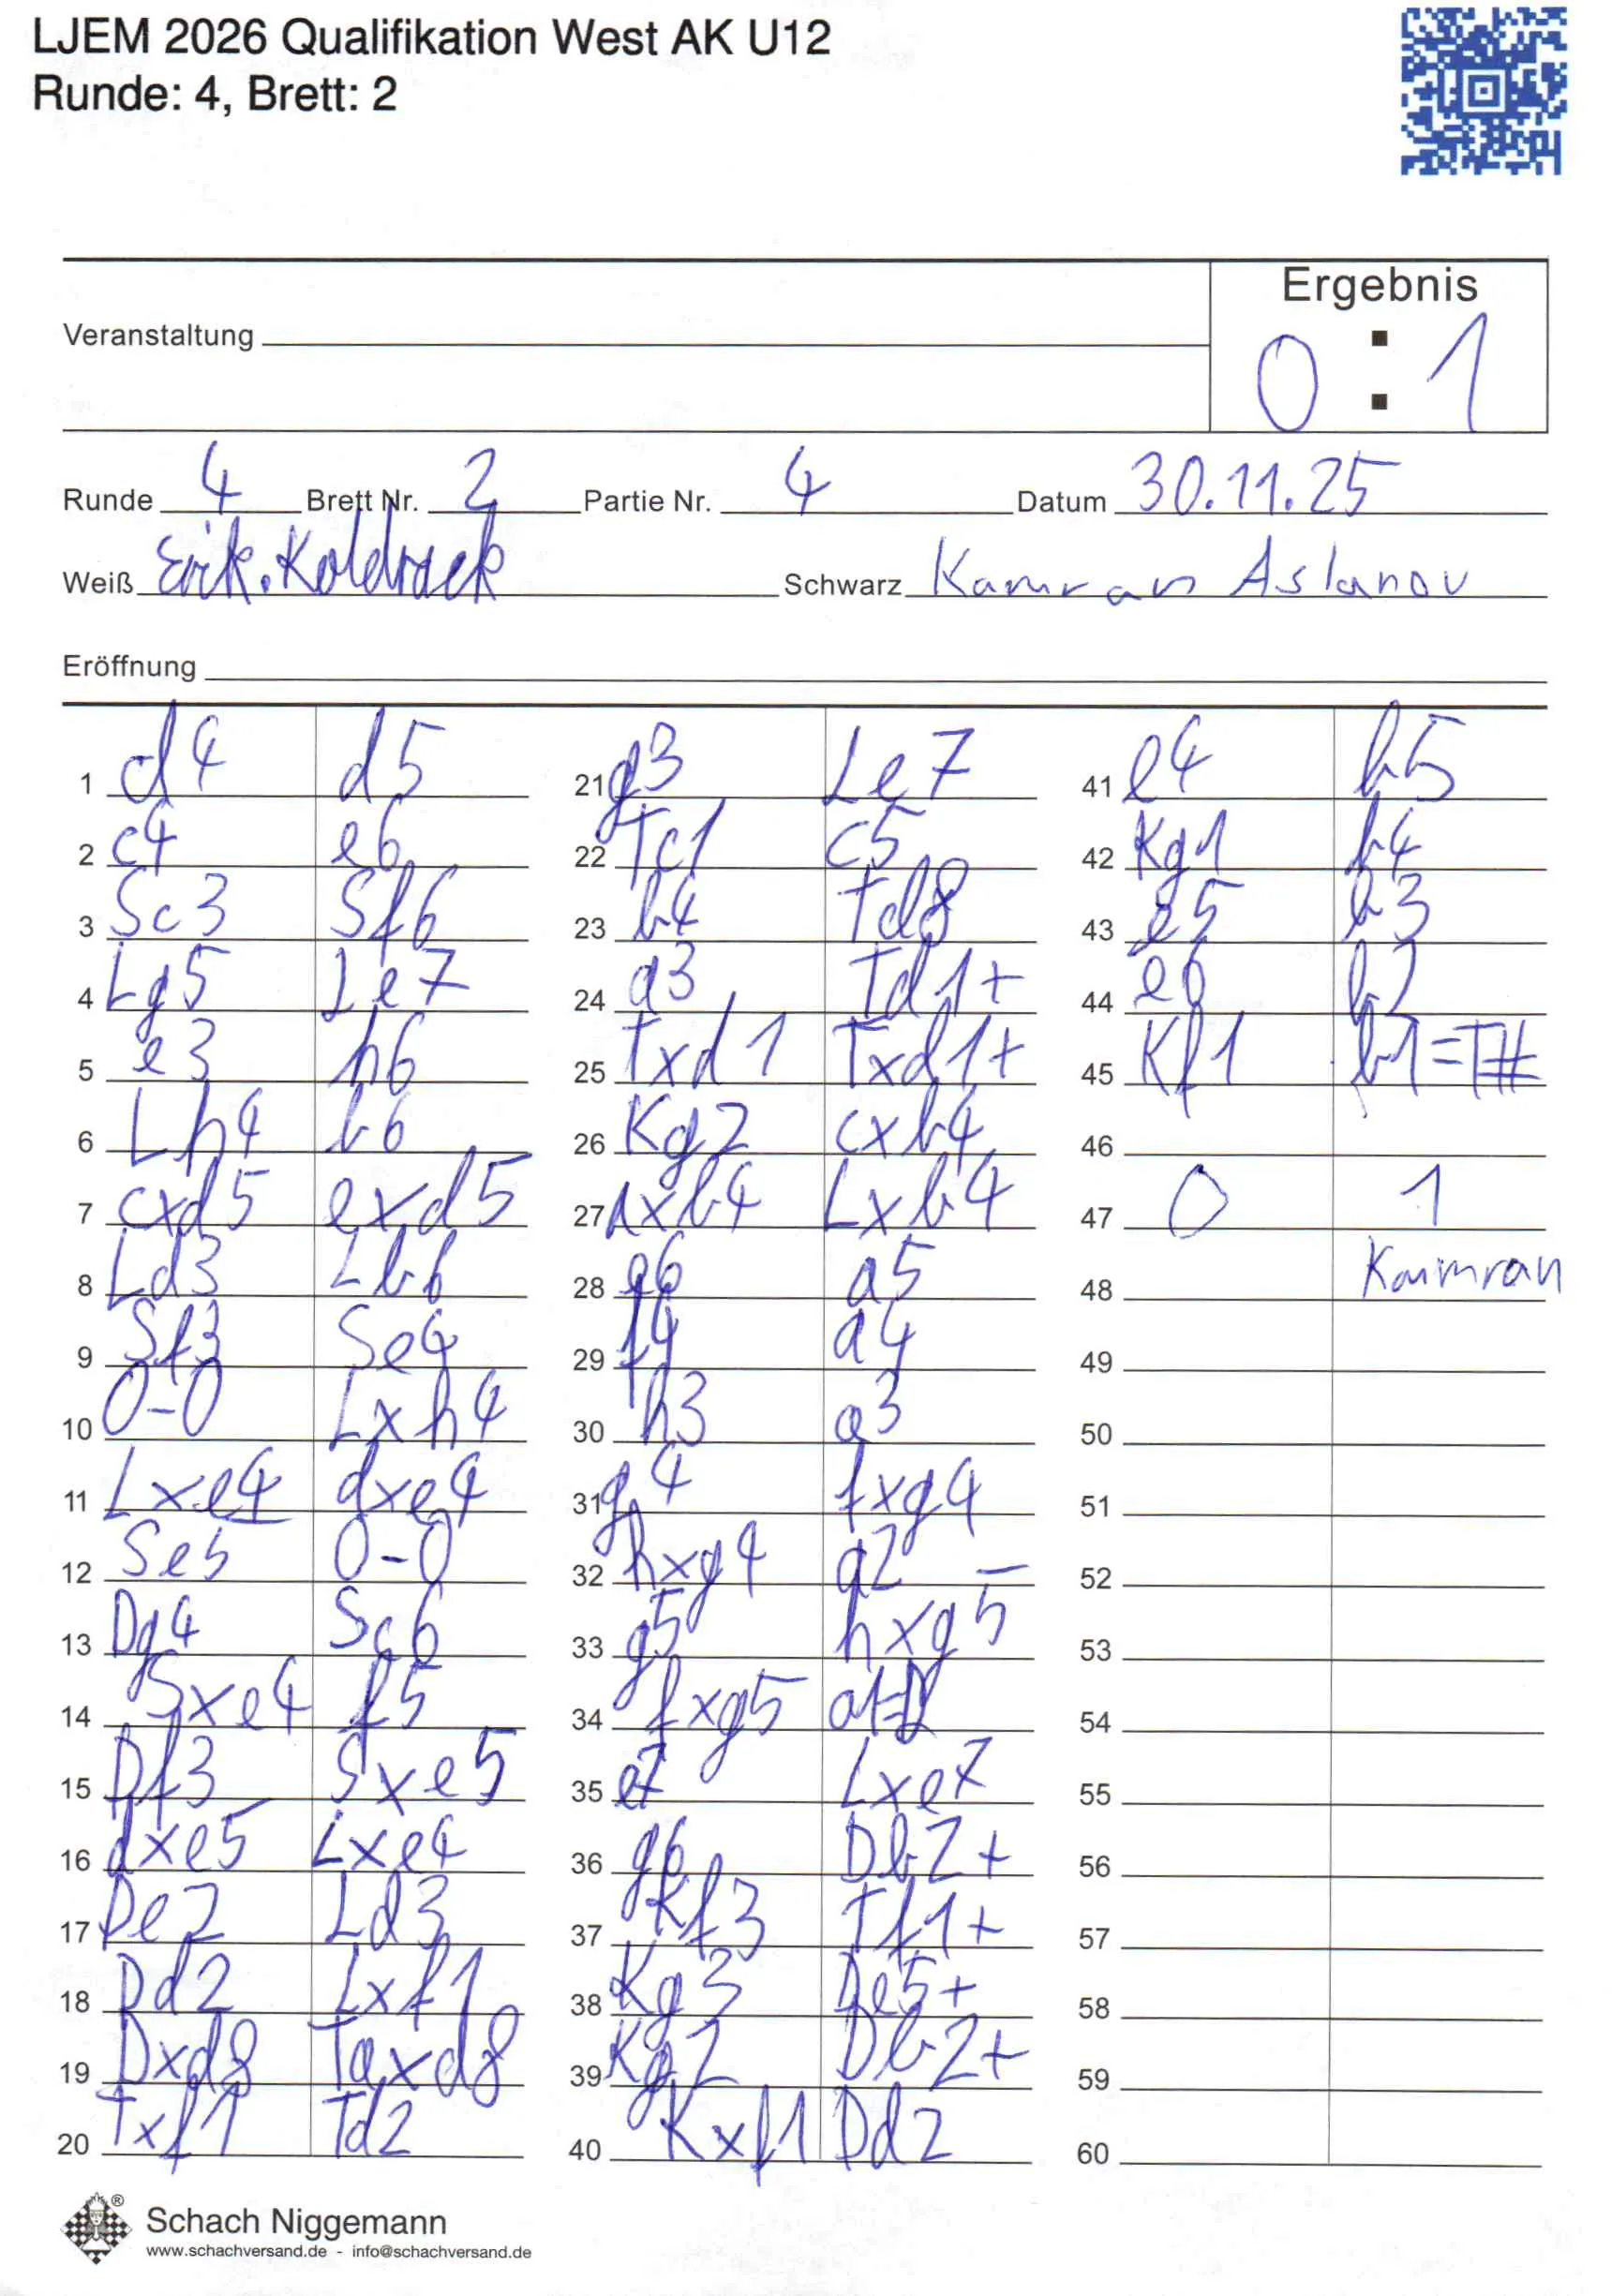 LJEM 2026 Qualifikation West AK U12
Runde: 4, Brett: 2
Ergebnis
Veranstaltung
0 : 1
Runde 4 Brett Nr. 2 Partie Nr. 4 Datum 30.11.25
Weiß Erik Koldrack Schwarz Kamran Aslanov
Eröffnung
1 d4 d5
2 c4 e6
3 Sc3 Sf6
4 Lg5 Le7
5 e3 h6
6 Lh4 b6
7 cxd5 exd5
8 Ld3 Lb6
9 Sf3 Se4
10 0-0 Lxh4
11 Lxe4 dxe4
12 Se5 0-0
13 Dg4 Sc6
14 Sxe4 f5
15 Df3 Sxe5
16 dxe5 Lxe4
17 De2 Ld3
18 Dd2 Lxf1
19 Dxd8 Taxd8
20 Txf1 Td2
21 g3 Le7
22 Tc1 c5
23 b4 Td8
24 a3 Td1+
25 Txd1 Txd1+
26 Kg2 cxb4
27 axb4 Lxb4
28 e6 a5
29 f4 a4
30 h3 a3
31 g4 fxg4
32 hxg4 a2
33 g5 hxg5
34 fxg5 a1=D
35 e7 Lxe7
36 g6 Db2+
37 Kf3 Tf1+
38 Kg3 De5+
39 Kg2 Db2+
40 Kxf1 Dd2
41 e4 b5
42 Kg1 b4
43 e5 b3
44 e6 b2
45 Kf1 b1=T#
46
47 0 1
48 Kamran
49
50
51
52
53
54
55
56
57
58
59
60
Schach Niggemann
www.schachversand.de - info@schachversand.de